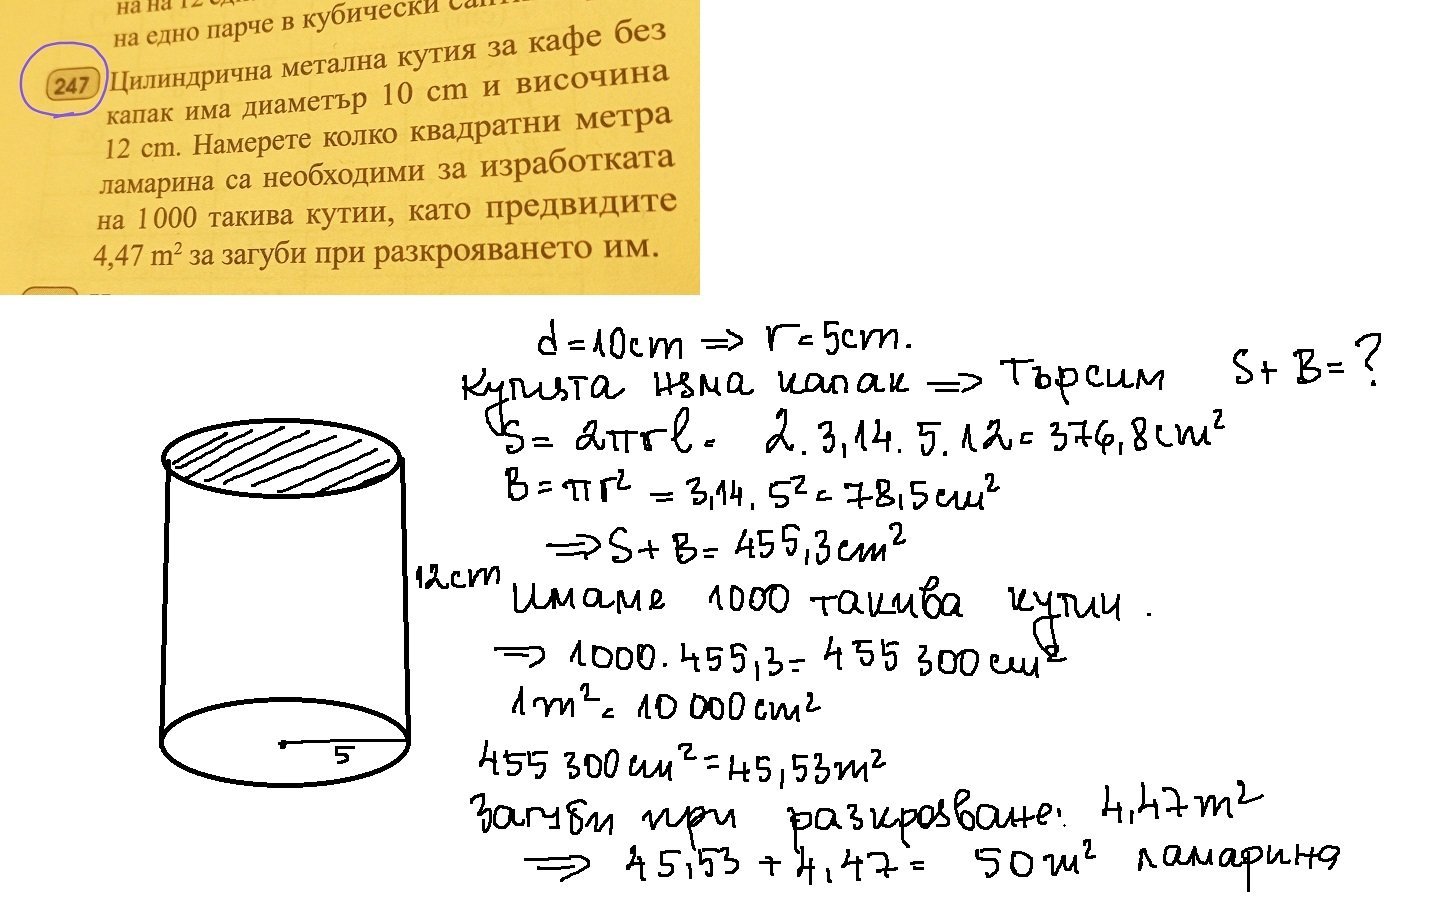 на едно парче в кубически
247 Цилиндрична метална кутия за кафе без
капак има диаметър 10 cm и височина
12 cm. Намерете колко квадратни метра
ламарина са необходими за изработката
на 1000 такива кутии, като предвидите
4,47 m² за загуби при разкрояването им.
d=10cm => r=5cm.
Кутията няма капак => Търсим S+B=?
S= 2πrl= 2.3,14.5.12=376,8cm²
B=πr²=3,14.5²=78,5cm²
=>S+B=455,3cm²
12cm
Имаме 1000 такива кутии.
=> 1000.455,3=455 300cm²
1m²=10 000cm²
5
455 300cm²=45,53m²
Загуби при разкрояване: 4,47m²
=> 45,53+4,47= 50m² ламарина